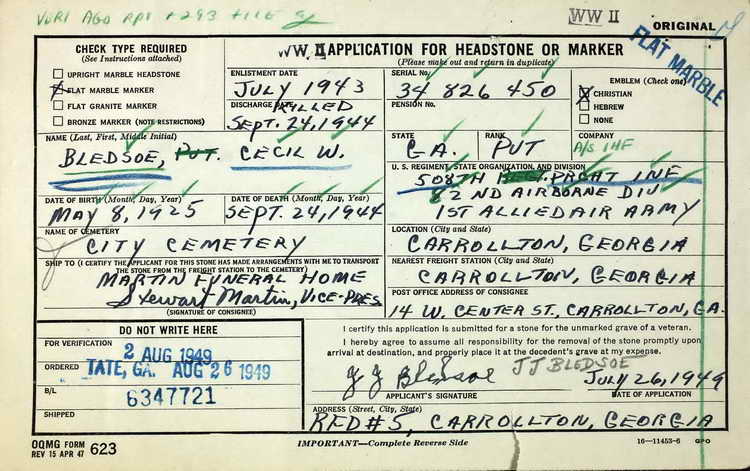 WW II
ORIGINAL
FLAT MARBLE
CHECK TYPE REQUIRED
(See Instructions attached)
UPRIGHT MARBLE HEADSTONE
FLAT MARBLE MARKER
FLAT GRANITE MARKER
BRONZE MARKER (NOTE RESTRICTIONS)
WW II APPLICATION FOR HEADSTONE OR MARKER
(Please make out and return in duplicate)
ENLISTMENT DATE
JULY 1943
DISCHARGE DATE
KILLED
SEPT. 24, 1944
SERIAL No.
34 826 450
PENSION No.
EMBLEM (Check one)
CHRISTIAN
HEBREW
NONE
NAME (Last, First, Middle Initial)
BLEDSOE, PVT. CECIL W.
STATE
GA.
RANK
PVT
COMPANY
A/S IHF
U. S. REGIMENT, STATE ORGANIZATION, AND DIVISION
508TH PRCHT INF
82 ND AIRBORNE DIV
1ST ALLIED AIR ARMY
DATE OF BIRTH (Month, Day, Year)
MAY 8, 1925
DATE OF DEATH (Month, Day, Year)
SEPT. 24, 1944
NAME OF CEMETERY
CITY CEMETERY
LOCATION (City and State)
CARROLLTON, GEORGIA
SHIP TO (I CERTIFY THE APPLICANT FOR THIS STONE HAS MADE ARRANGEMENTS WITH ME TO TRANSPORT
THE STONE FROM THE FREIGHT STATION TO THE CEMETERY)
MARTIN FUNERAL HOME
Stewart Martin, VICE-PRES
(SIGNATURE OF CONSIGNEE)
NEAREST FREIGHT STATION (City and State)
CARROLLTON, GEORGIA
POST OFFICE ADDRESS OF CONSIGNEE
14 W. CENTER ST., CARROLLTON, GA.
DO NOT WRITE HERE
FOR VERIFICATION
2 AUG 1949
ORDERED
TATE, GA. AUG 26 1949
B/L
6347721
SHIPPED
I certify this application is submitted for a stone for the unmarked grave of a veteran.
I hereby agree to assume all responsibility for the removal of the stone promptly upon
arrival at destination, and properly place it at the decedent's grave at my expense.
J J Bledsoe JJ BLEDSOE JULY 26, 1949
APPLICANT'S SIGNATURE
DATE OF APPLICATION
ADDRESS (Street, City, State)
RFD #5, CARROLLTON, GEORGIA
OQMG FORM
REV 15 APR 47 623
IMPORTANT—Complete Reverse Side
16—11453-6 GPO